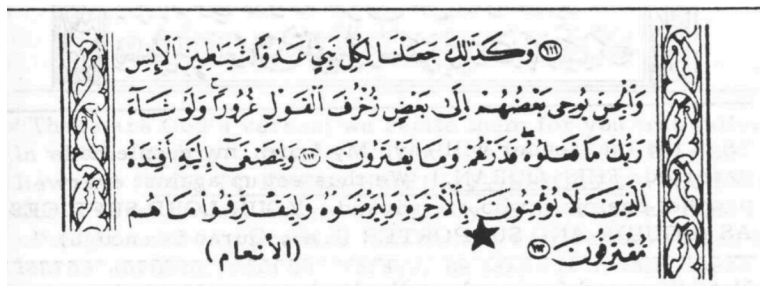 ﴿١١١﴾ وَكَذَٰلِكَ جَعَلْنَا لِكُلِّ نَبِيٍّ عَدُوًّا شَيَاطِينَ ٱلْإِنسِ
وَٱلْجِنِّ يُوحِى بَعْضُهُمْ إِلَىٰ بَعْضٍ زُخْرُفَ ٱلْقَوْلِ غُرُورًا ۚ وَلَوْ شَآءَ
رَبُّكَ مَا فَعَلُوهُ ۖ فَذَرْهُمْ وَمَا يَفْتَرُونَ ﴿١١٢﴾ وَلِتَصْغَىٰٓ إِلَيْهِ أَفْـِٔدَةُ
ٱلَّذِينَ لَا يُؤْمِنُونَ بِٱلْأَخِرَةِ وَلِيَرْضَوْهُ وَلِيَقْتَرِفُوا۟ مَا هُم
مُّقْتَرِفُونَ ﴿١١٣﴾ (الأنعام)